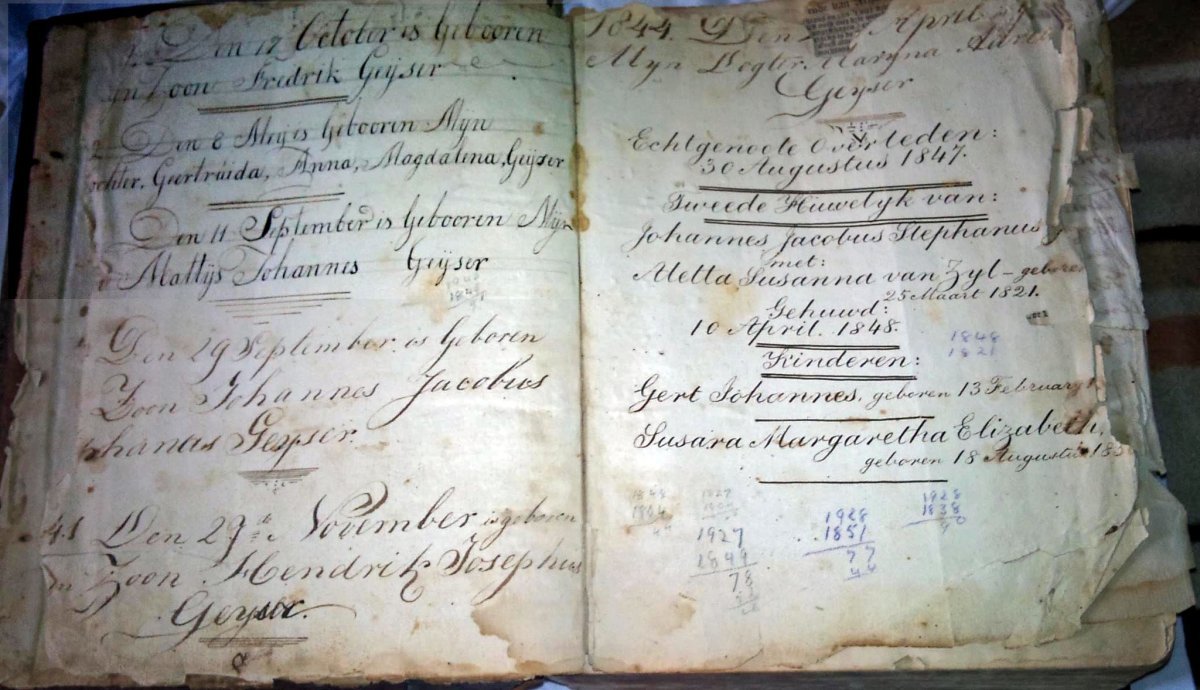 Den 12 October is Gebooren
Zoon Fredrik Geÿser
Den 8 Meÿ is Gebooren Mÿn
ochter, Geertruida, Anna, Magdalena, Geÿser
Den 11 September is Gebooren Mÿn
Mattÿs Johannes Geÿser
Den 29 September is Geboren
Zoon Johannes Jacobus
Geyser.
41 Den 29ste November is geboren
Zoon Hendrik Josephus
Geyser.
1844. Den April
Myn Dogter Maryna
Geyser
Echtgenoote Overleden:
30 Augustus 1847.
Tweede Huwelyk van:
Johannes Jacobus Stephanus
met:
Aletta Susanna van Zyl – geboren
25 Maart 1821.
Gehuwd:
10 April. 1848.
1848
1821
Kinderen:
Gert Johannes, geboren 13 February
Susara Margaretha Elizabeth,
geboren 18 Augustus 185
1927
1849
78
1928
1851
77
1928
1838